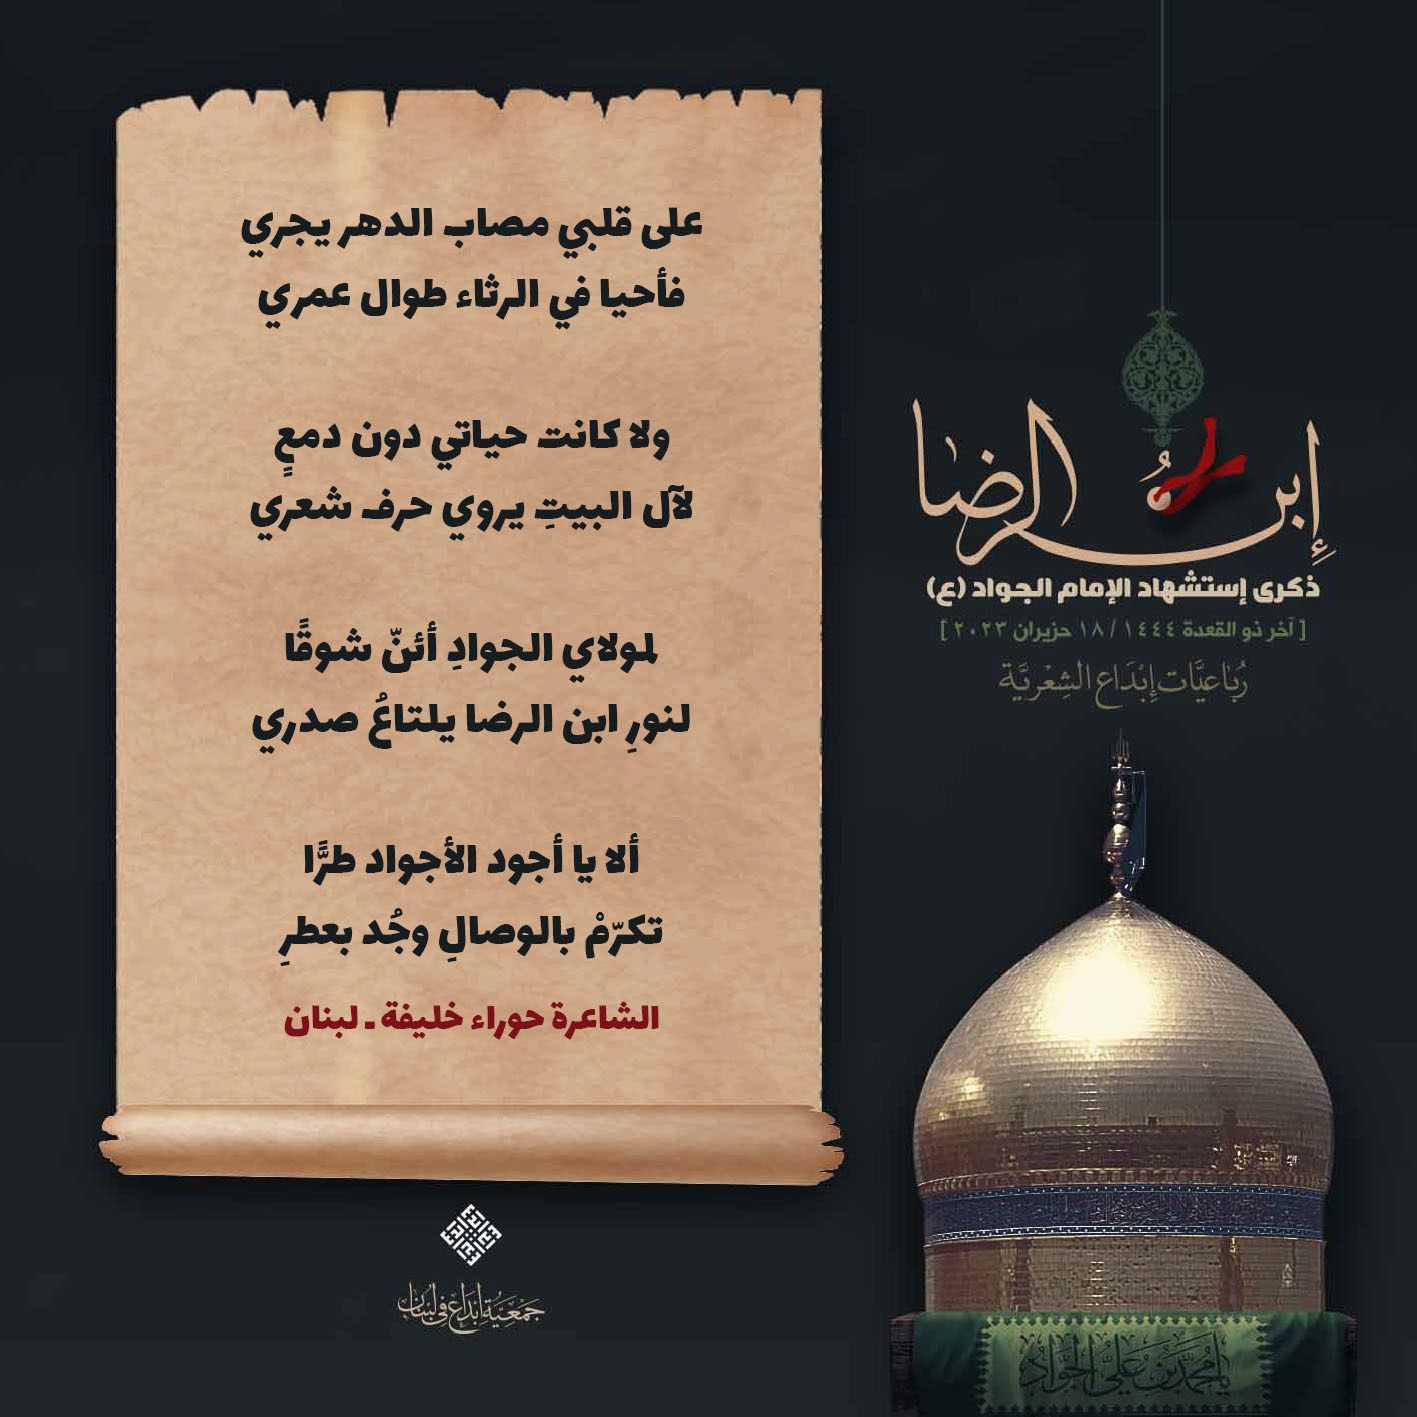 إبن الرضا
ذكرى إستشهاد الإمام الجواد (ع)
[ آخر ذو القعدة ١٤٤٤ / ١٨ حزيران ٢٠٢٣ ]
رُبَاعيَّات إبْدَاع الشِعْريَّة
على قلبي مصاب الدهر يجري
فأحيا في الرثاء طوال عمري
ولا كانت حياتي دون دمعٍ
لآل البيتِ يروي حرف شعري
لمولاي الجوادِ أئنّ شوقًا
لنورِ ابن الرضا يلتاعُ صدري
ألا يا أجود الأجواد طرًّا
تكرّمْ بالوصالِ وجُد بعطرِ
الشاعرة حوراء خليفة ـ لبنان
جَمْعِيَّة إبْدَاع في لبنان
يا محمد بن علي الجواد